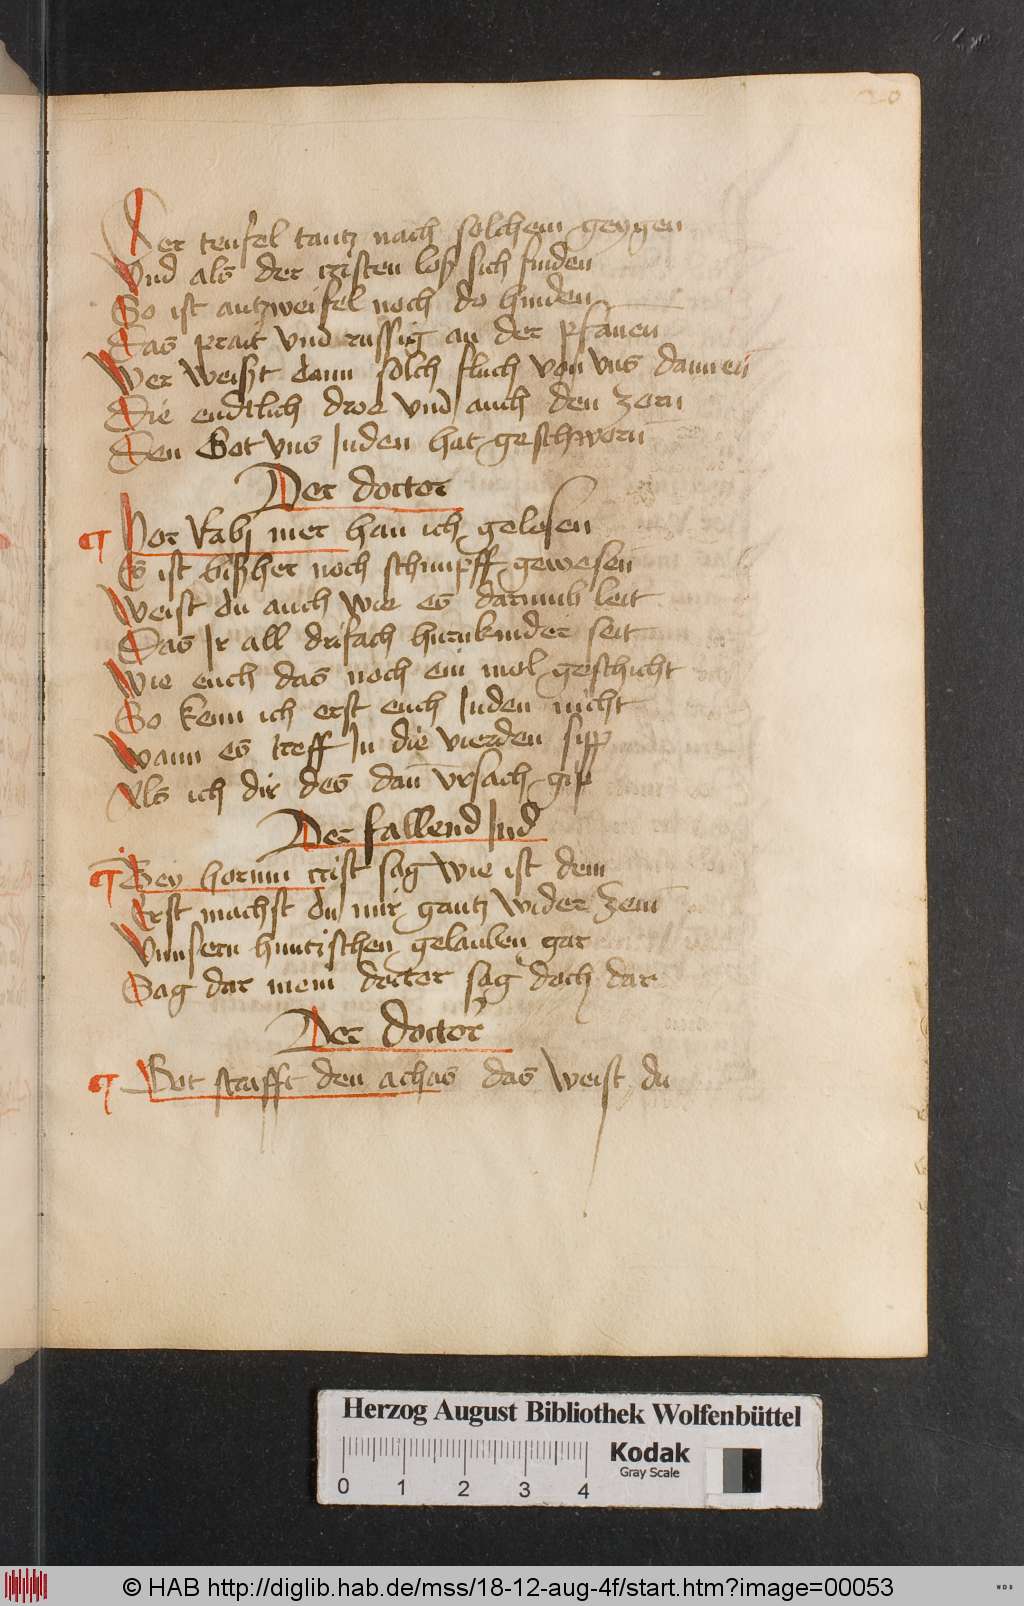 20
Der teufel tantz nach solchem geygen
Vnd als der cristen loß sich finden
So ist antzweifel noch do hinden
Das prait vnd russig an der pfanen
Wer weißt dann solch fluch von vns dannen
Die endtlich droe vnd auch den zorn
Den Got vns Juden hat geschworn
Der doctor
Hor Rabj mer han ich gelesen
Es ist bißher noch schimpff gewesen
Weist du auch wie es darumb leit
Das Jr all drifach hurnkinder seit
Wie euch das noch ein mol geschicht
So kenn ich erst euch Juden nicht
Wann es treff Jn die vierden sipp
Als ich dir des dan vrsach gip
Der fallend Jud
Bey horum crist sag wie ist dem
Erst machst du mir gantz wider zem
Vnnsern huntischen gelauben gar
Sag dar mein doctor sag doch dar
Der doctor
Got strafft den achas das weist du
Herzog August Bibliothek Wolfenbüttel
Kodak
Gray Scale
0 1 2 3 4
© HAB http://diglib.hab.de/mss/18-12-aug-4f/start.htm?image=00053